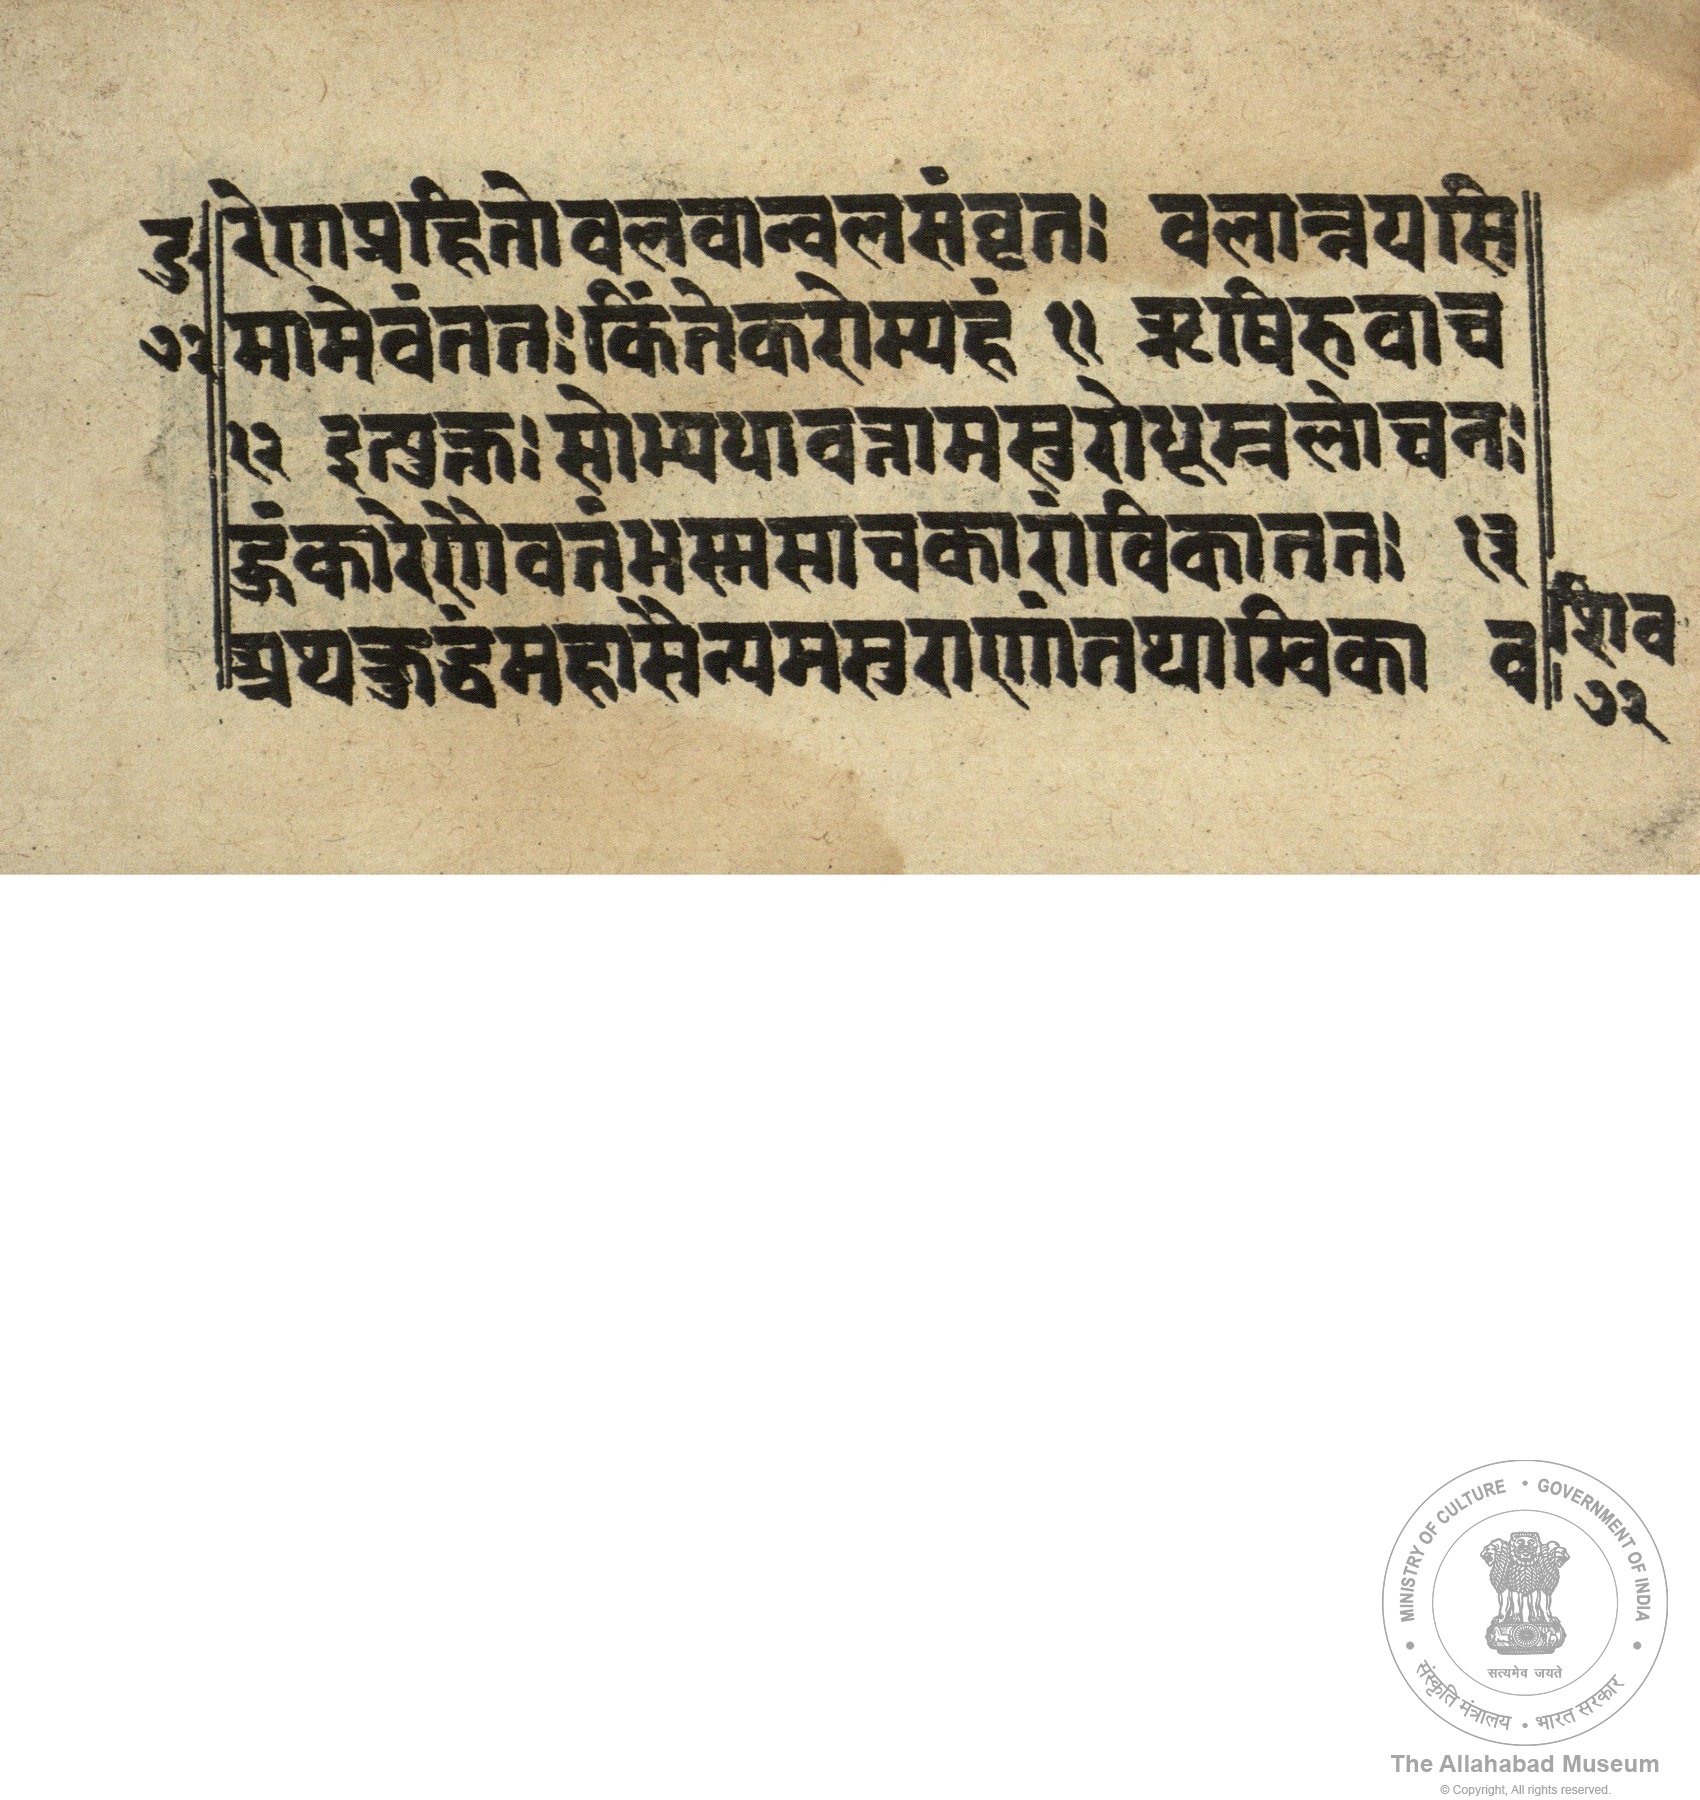 दु
७२
रेणप्रहितोवलवान्वलसंवृतः वलान्नयसि
मामेवंततःकिंतेकरोम्यहं ११ ऋषिरुवाच
१२ इत्युक्तःसोभ्यधावत्तामसुरोधूम्रलोचनः
हुंकारेणैवतंभस्मसाचकारांविकाततः १३
अथक्रुद्धंमहासैन्यमसुराणांतथाम्विका व
शिव
७२
MINISTRY OF CULTURE • GOVERNMENT OF INDIA
सत्यमेव जयते
संस्कृति मंत्रालय • भारत सरकार
The Allahabad Museum
© Copyright, All rights reserved.